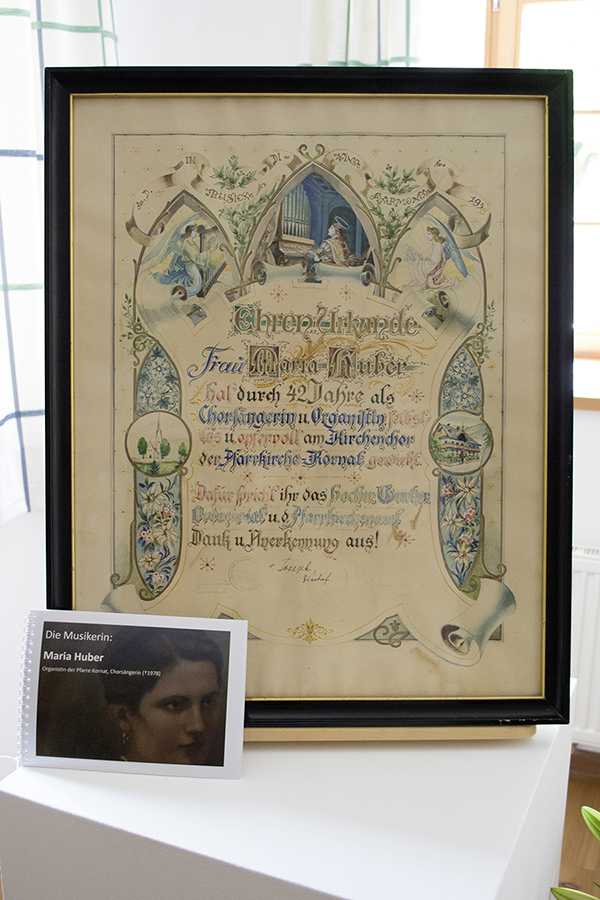 IN
MUSICA
HARMONIA
19
Ehren-Urkunde
Frau Maria Huber
hat durch 42 Jahre als
Chorsängerin u. Organistin selbst-
los u. opfervoll am Kirchenchor
der Pfarrkirche Kornat gewirkt.
Dafür spricht ihr das Hochw.
u. d. Pfarrkirchenamt
Dank u. Anerkennung aus!
+ Joseph,
Bischof.
Die Musikerin:
Maria Huber
Organistin der Pfarre Kornat, Chorsängerin (†1978)